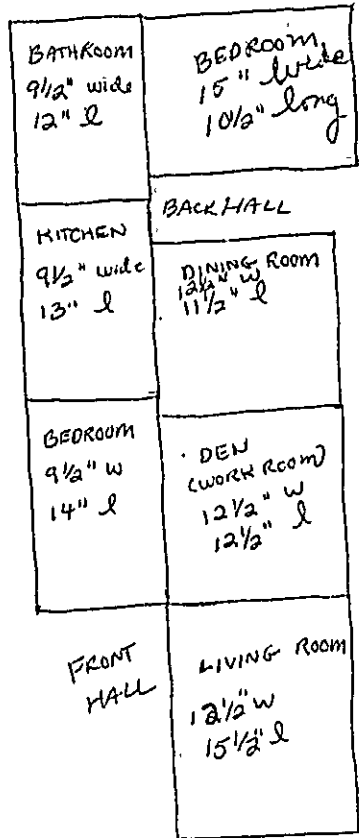 BATHROOM
9 1/2" wide
12" l
BEDROOM
15" wide
10 1/2" long
BACK HALL
KITCHEN
9 1/2" wide
13" l
DINING ROOM
12 1/2" w
11 1/2" l
BEDROOM
9 1/2" w
14" l
DEN
(WORK ROOM)
12 1/2" w
12 1/2" l
FRONT
HALL
LIVING ROOM
12 1/2" w
15 1/2" l